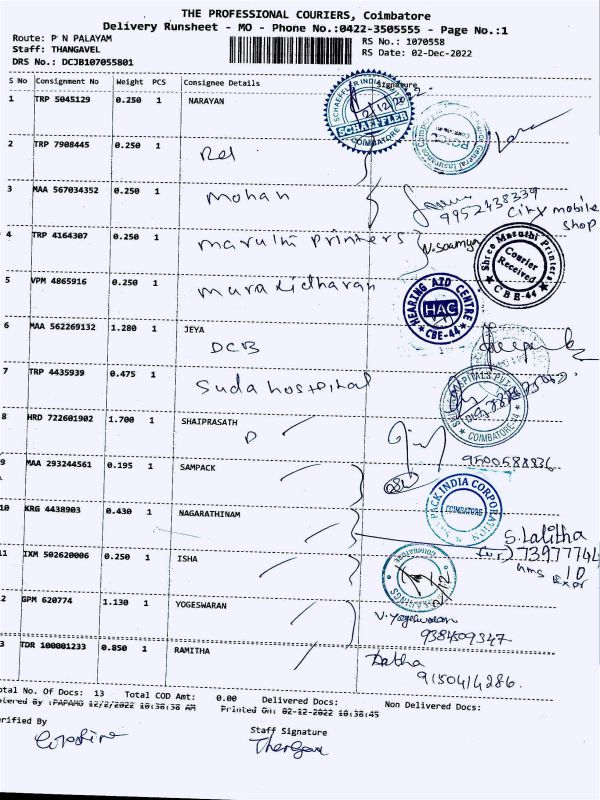 THE PROFESSIONAL COURIERS, Coimbatore
Delivery Runsheet - MO - Phone No.:0422-3505555 - Page No.:1
Route: P N PALAYAM
RS No.: 1070558
Staff: THANGAVEL
RS Date: 02-Dec-2022
DRS No.: DCJB107055801
S No Consignment No Weight PCS Consignee Details Signature
1 TRP 5045129 0.250 1 NARAYAN
SCHAEFFLER INDIA
SCHAEFFLER
COIMBATORE
2 TRP 7908445 0.250 1
3 MAA 567034352 0.250 1 Mohan
9952438339
City mobile
shop
4 TRP 4164307 0.250 1 Maruthi Printers
N. Soamya
Shree Maruthi Printers
Courier
Received
CBE-44
5 VPM 4865916 0.250 1 Muralidharan
HEARING AID CENTRE
HAC
CBE-44
6 MAA 562269132 1.280 1 JEYA
DCB
7 TRP 4435939 0.475 1 Suda hospital
COIMBATORE
8 HRD 722601902 1.700 1 SHAIPRASATH
D
9500588836
9 MAA 293244561 0.195 1 SAMPACK
PACK INDIA CORPORATION
COIMBATORE
10 KRG 4438903 0.430 1 NAGARATHINAM
S. Lalitha
11 IXM 502620006 0.250 1 ISHA
2 GPM 620774 1.130 1 YOGESWARAN
V. Yogeswaran
9384509347
3 TDR 100001233 0.850 1 RAMITHA
9150414286.
otal No. Of Docs: 13 Total COD Amt: 0.00 Delivered Docs: Non Delivered Docs:
tered By :PAPAMO 12/2/2022 10:38:38 AM Printed On: 02-12-2022 10:38:45
erified By
Staff Signature